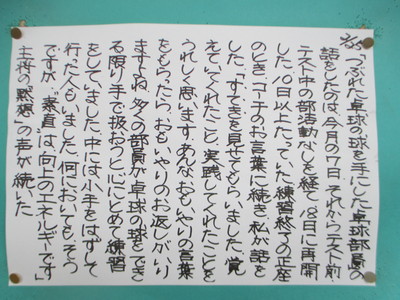 2/25「つぶれた卓球の球を手にした卓球部員の
話をしたのは、今月の7日、それからテスト前・
テスト中の部活動なしを経て18日に再開
した。10日以上たっていた練習終了の正座
のとき、コーチのお言葉に続き、私が話を
した。「すてきを見せてもらいました。覚
えていてくれたこと、実践してくれたことを
うれしく思います。あんなおもいやりの言葉
をもらったら、おもいやりのお返しがいり
ますよね。多くの部員が卓球の球を、でき
る限り手で扱おうとにしとめて練習
をしていました。中には小手をはずして
行った人もいました。何においても、そう
ですが、“素直”は、向上のエネルギーです」
主将の「黙想」の声が続いた